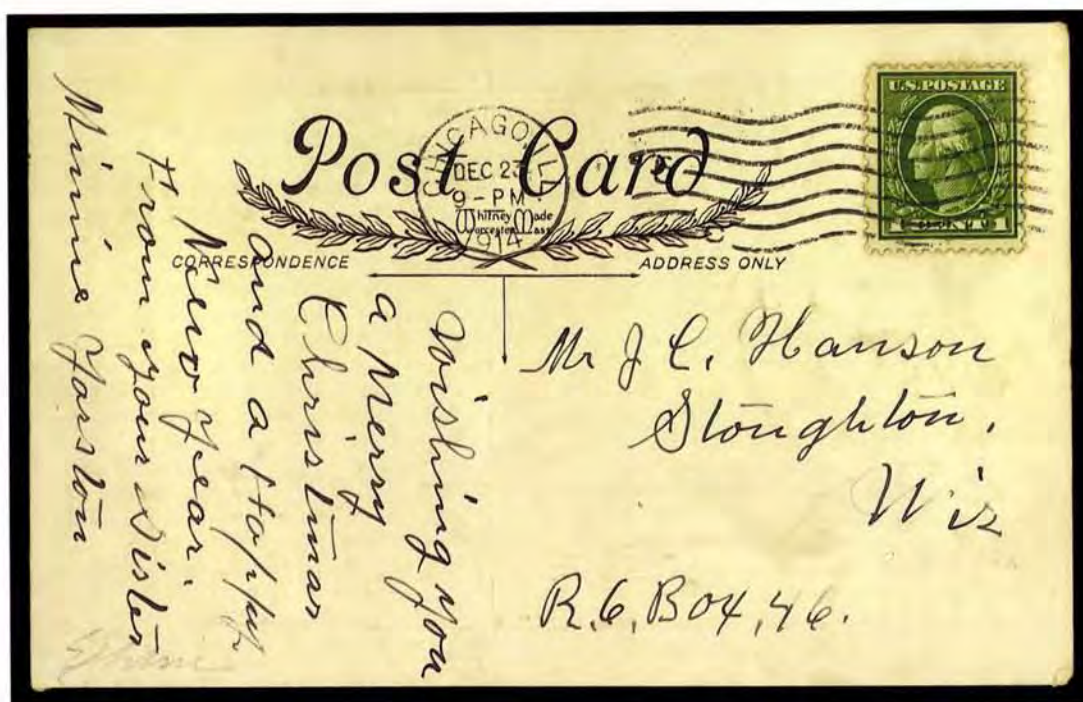 Post Card
CHICAGO, ILL
DEC 23
9-PM
1914
Whitney Made
Worcester Mass
U.S. POSTAGE
1 CENT 1
CORRESPONDENCE
ADDRESS ONLY
Wishing you
a Merry
Christmas
and a Happy
New Year.
From your Sister
Minnie Yarston
Mr J C. Hanson
Stoughton,
Wis
R.6. Box, 46.